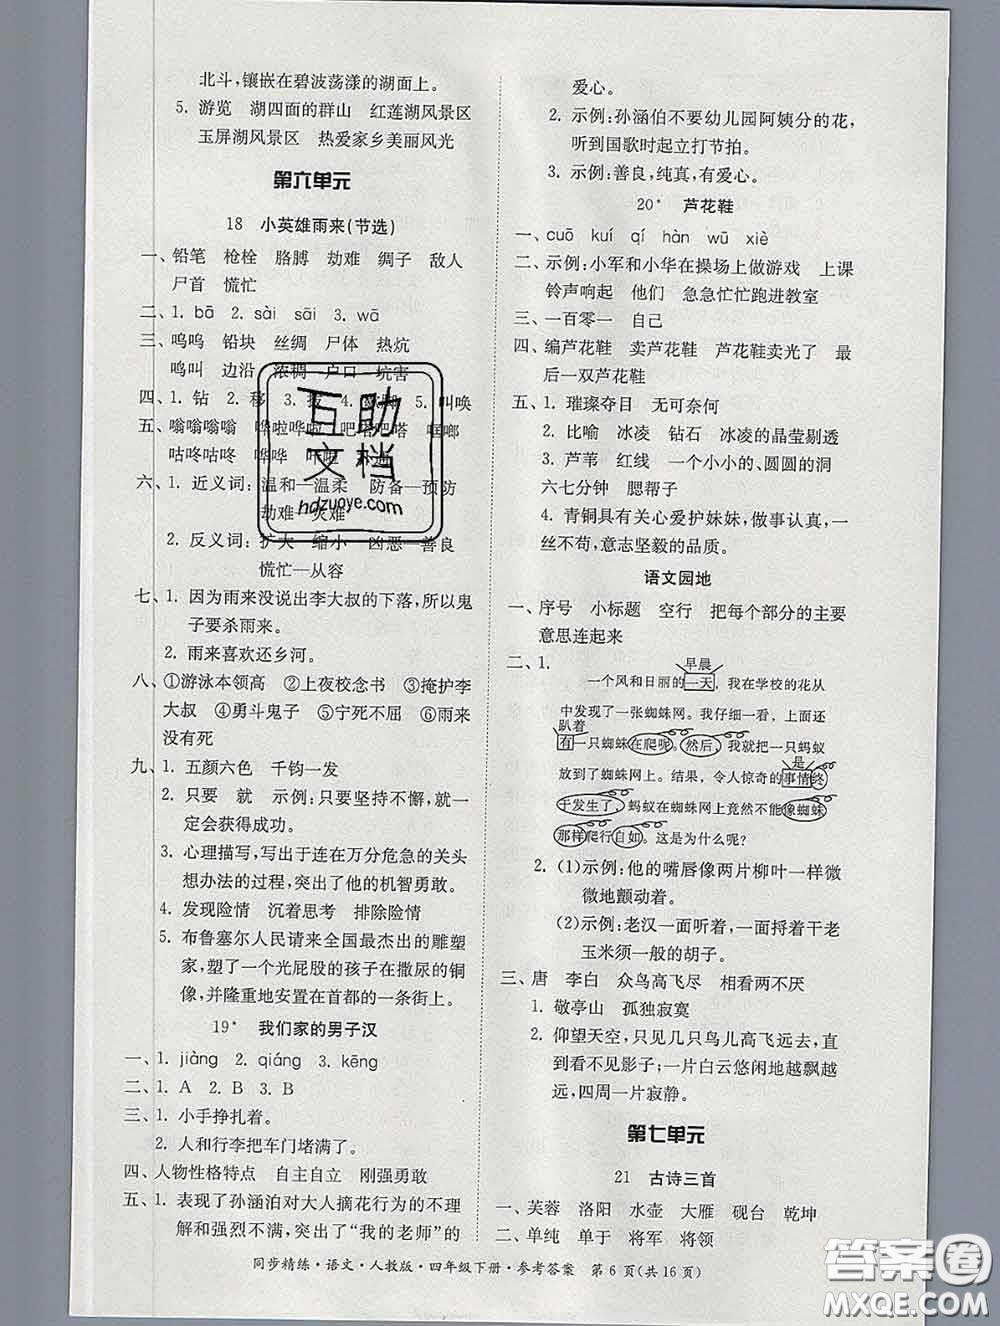 北斗,镶嵌在碧波荡漾的湖面上。
5. 游览 湖四面的群山 红莲湖风景区
玉屏湖风景区 热爱家乡美丽风光
第六单元
18 小英雄雨来(节选)
一、铅笔 枪栓 胳膊 劫难 绸子 敌人
尸首 慌忙
二、1. bā 2. sài sāi 3. wā
三、呜呜 铅块 丝绸 尸体 热炕
鸣叫 边沿 浓稠 户口 坑害
四、1. 钻 2. 移 3. 拔 4. 5. 叫唤
五、嗡嗡嗡嗡 哗啦哗啦 吧嗒吧嗒 哐啷
咕咚咕咚 哗哗
六、1. 近义词:温和—温柔 防备—预防
劫难—灾难
2. 反义词:扩大—缩小 凶恶—善良
慌忙—从容
七、1. 因为雨来没说出李大叔的下落,所以鬼
子要杀雨来。
2. 雨来喜欢还乡河。
八、①游泳本领高 ②上夜校念书 ③掩护李
大叔 ④勇斗鬼子 ⑤宁死不屈 ⑥雨来
没有死
九、1. 五颜六色 千钧一发
2. 只要 就 示例:只要坚持不懈,就一
定会获得成功。
3. 心理描写,写出于连在万分危急的关头
想办法的过程,突出了他的机智勇敢。
4. 发现险情 沉着思考 排除险情
5. 布鲁塞尔人民请来全国最杰出的雕塑
家,塑了一个光屁股的孩子在撒尿的铜
像,并隆重地安置在首都的一条街上。
19* 我们家的男子汉
一、1. jiàng 2. qiáng 3. kēng
二、1. A 2. B 3. B
三、1. 小手挣扎着。
2. 人和行李把车门堵满了。
四、人物性格特点 自主自立 刚强勇敢
五、1. 表现了孙涵泊对大人摘花行为的不理
解和强烈不满,突出了“我的老师”的
爱心。
2. 示例:孙涵伯不要幼儿园阿姨分的花,
听到国歌时起立打节拍。
3. 示例:善良,纯真,有爱心。
20* 芦花鞋
一、cuō kuí qí hàn wū xiè
二、示例:小军和小华在操场上做游戏 上课
铃声响起 他们 急急忙忙跑进教室
三、一百零一 自己
四、编芦花鞋 卖芦花鞋 芦花鞋卖光了 最
后一双芦花鞋
五、1. 璀璨夺目 无可奈何
2. 比喻 冰凌 钻石 冰凌的晶莹剔透
3. 芦苇 红线 一个小小的、圆圆的洞
六七分钟 腮帮子
4. 青铜具有关心爱护妹妹,做事认真,一
丝不苟,意志坚毅的品质。
语文园地
一、序号 小标题 空行 把每个部分的主要
意思连起来
二、1.
早晨
一个风和日丽的一天,我在学校的花丛
中发现了一张蜘蛛网。我仔细一看,上面还
趴着
有一只蜘蛛在爬呢。然后,我就把一只蚂蚁
是
放到了蜘蛛网上。结果,令人惊奇的事情终
于发生了,蚂蚁在蜘蛛网上竟然不能像蜘蛛
那样爬行自如。这是为什么呢?
2. (1)示例:他的嘴唇像两片柳叶一样微
微地颤动着。
(2)示例:老汉一面听着,一面捋着干老
玉米须一般的胡子。
三、唐 李白 众鸟高飞尽 相看两不厌
1. 敬亭山 孤独寂寞
2. 仰望天空,只见几只鸟儿高飞远去,直
到看不见影子;一片白云悠闲地越飘越
远,四周一片寂静。
第七单元
21 古诗三首
一、芙蓉 洛阳 水壶 大雁 砚台 乾坤
二、单纯 单于 将军 将领
同步精练·语文·人教版·四年级下册·参考答案 第 6 页(共 16 页)
互助
文档
hdzuoye.com
答案圈
MXQE.COM